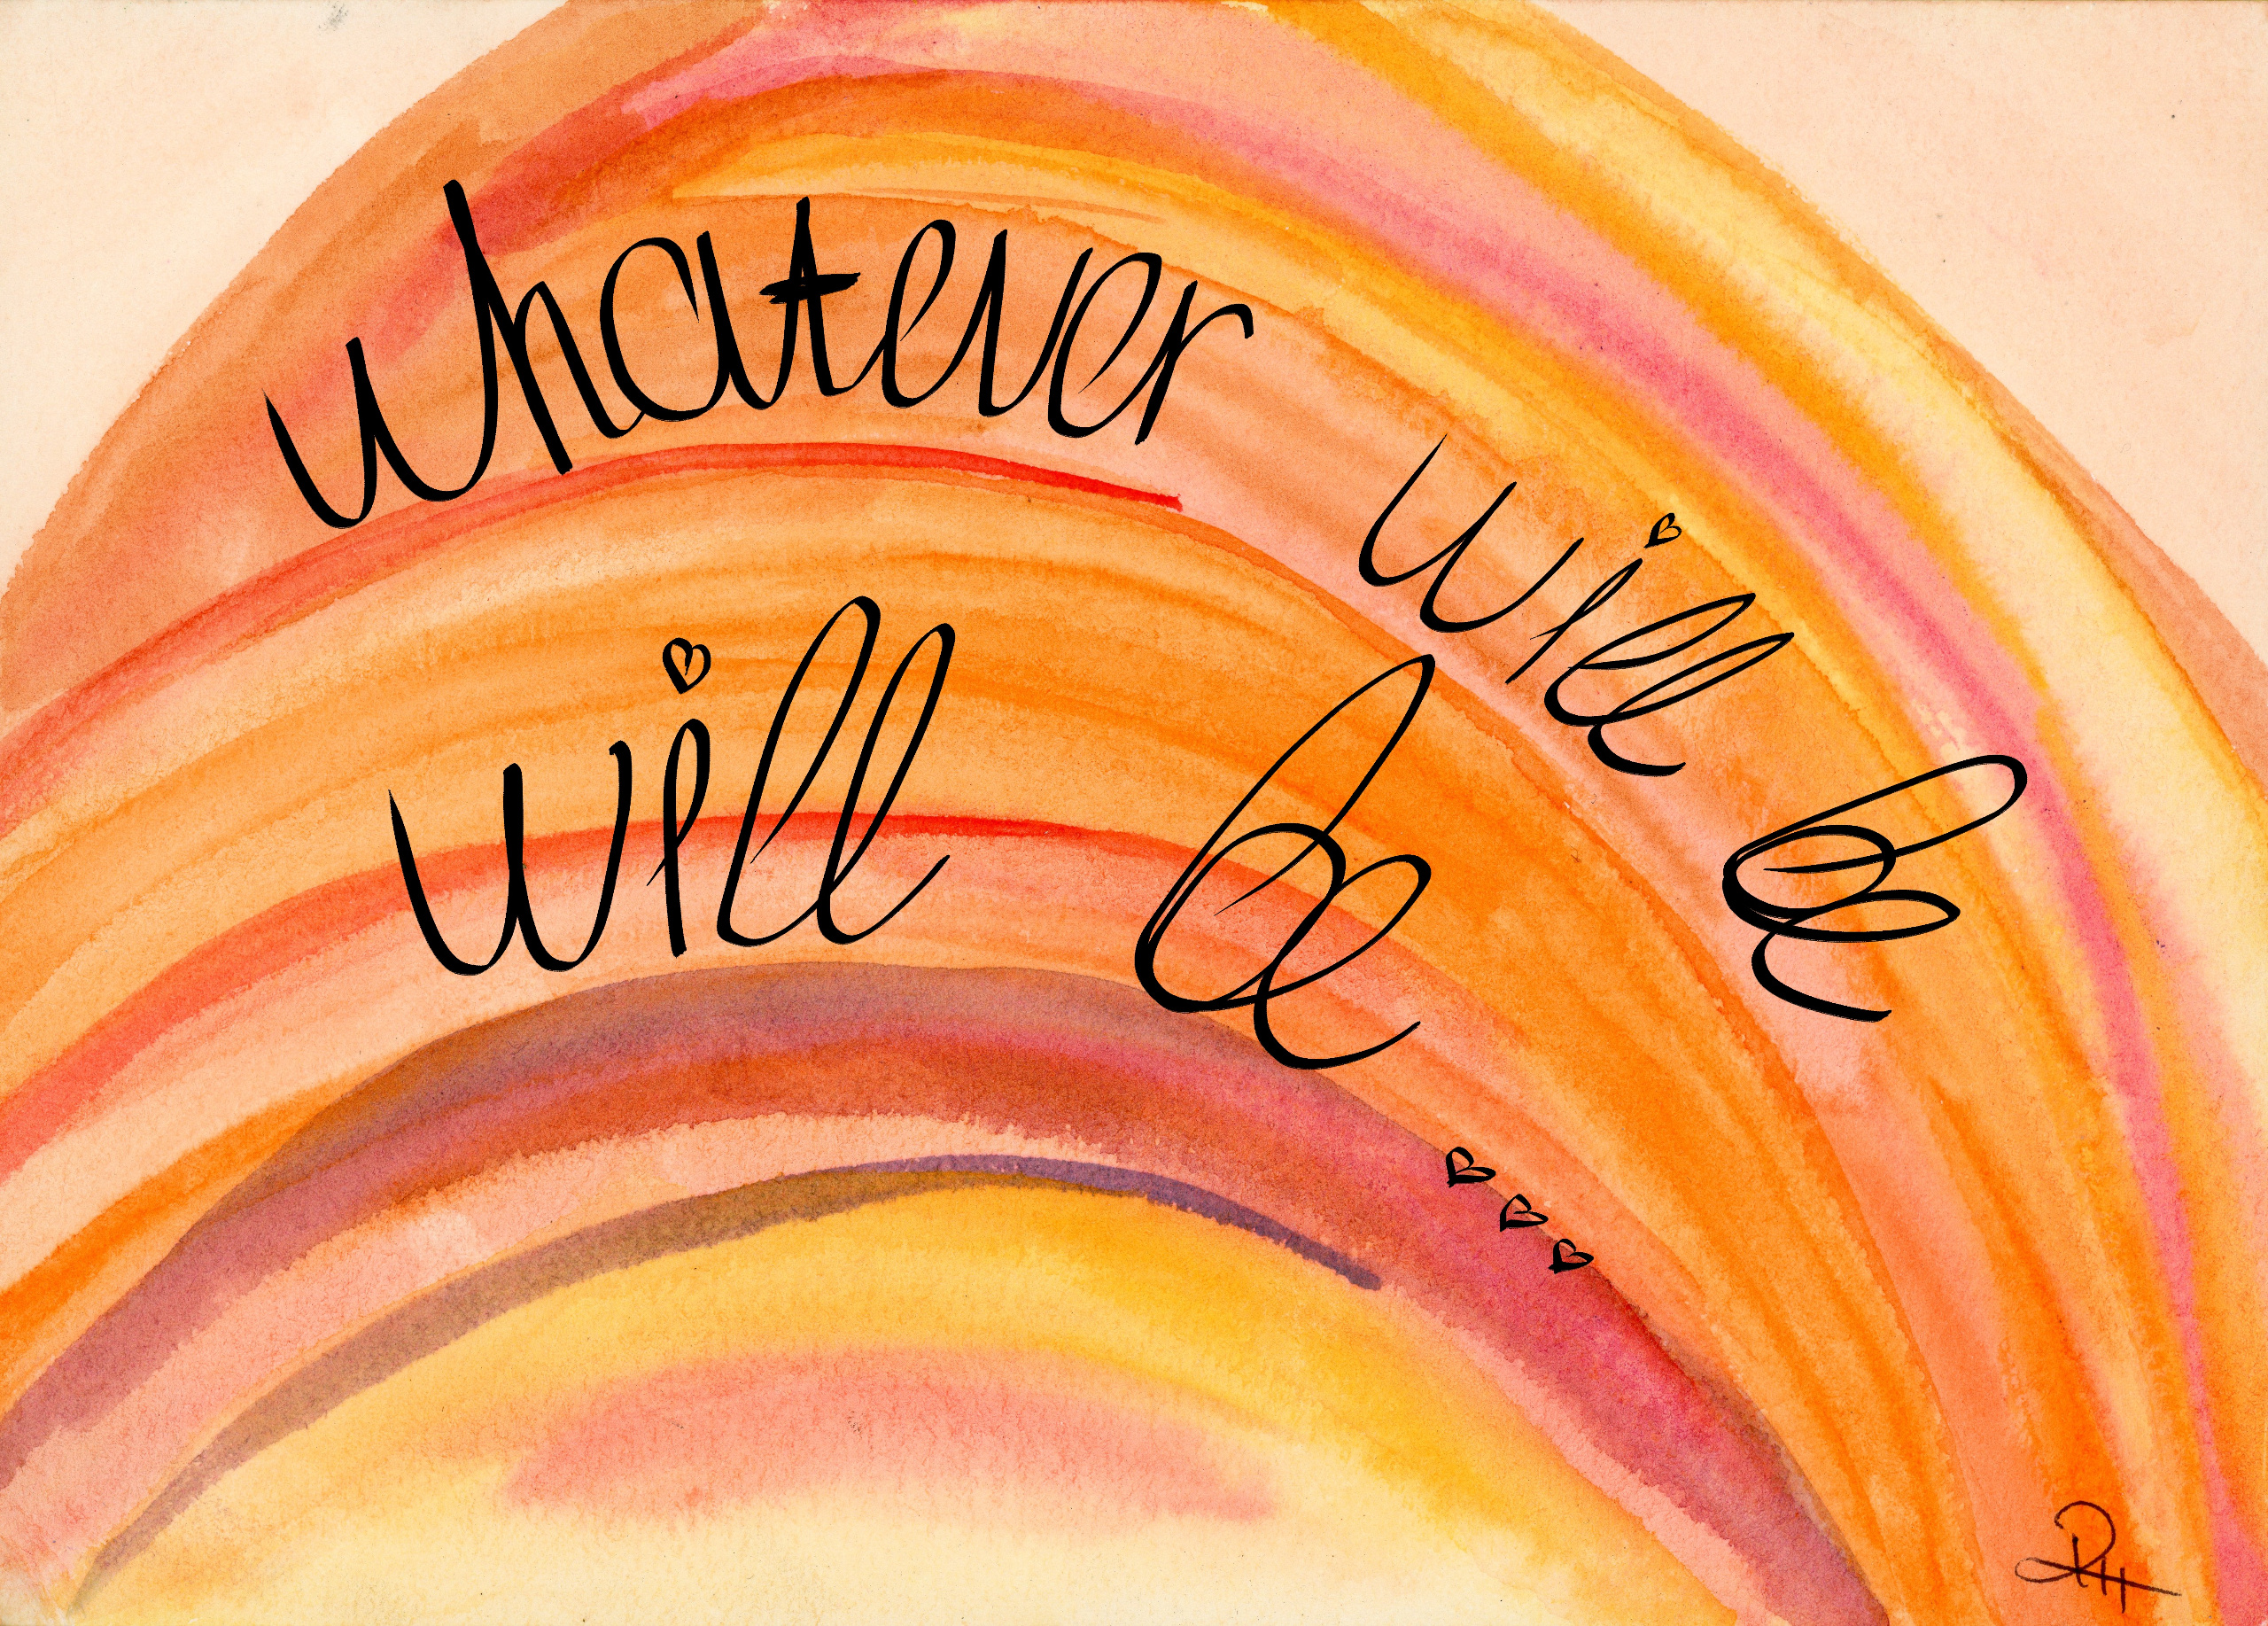 whatever will be
will be